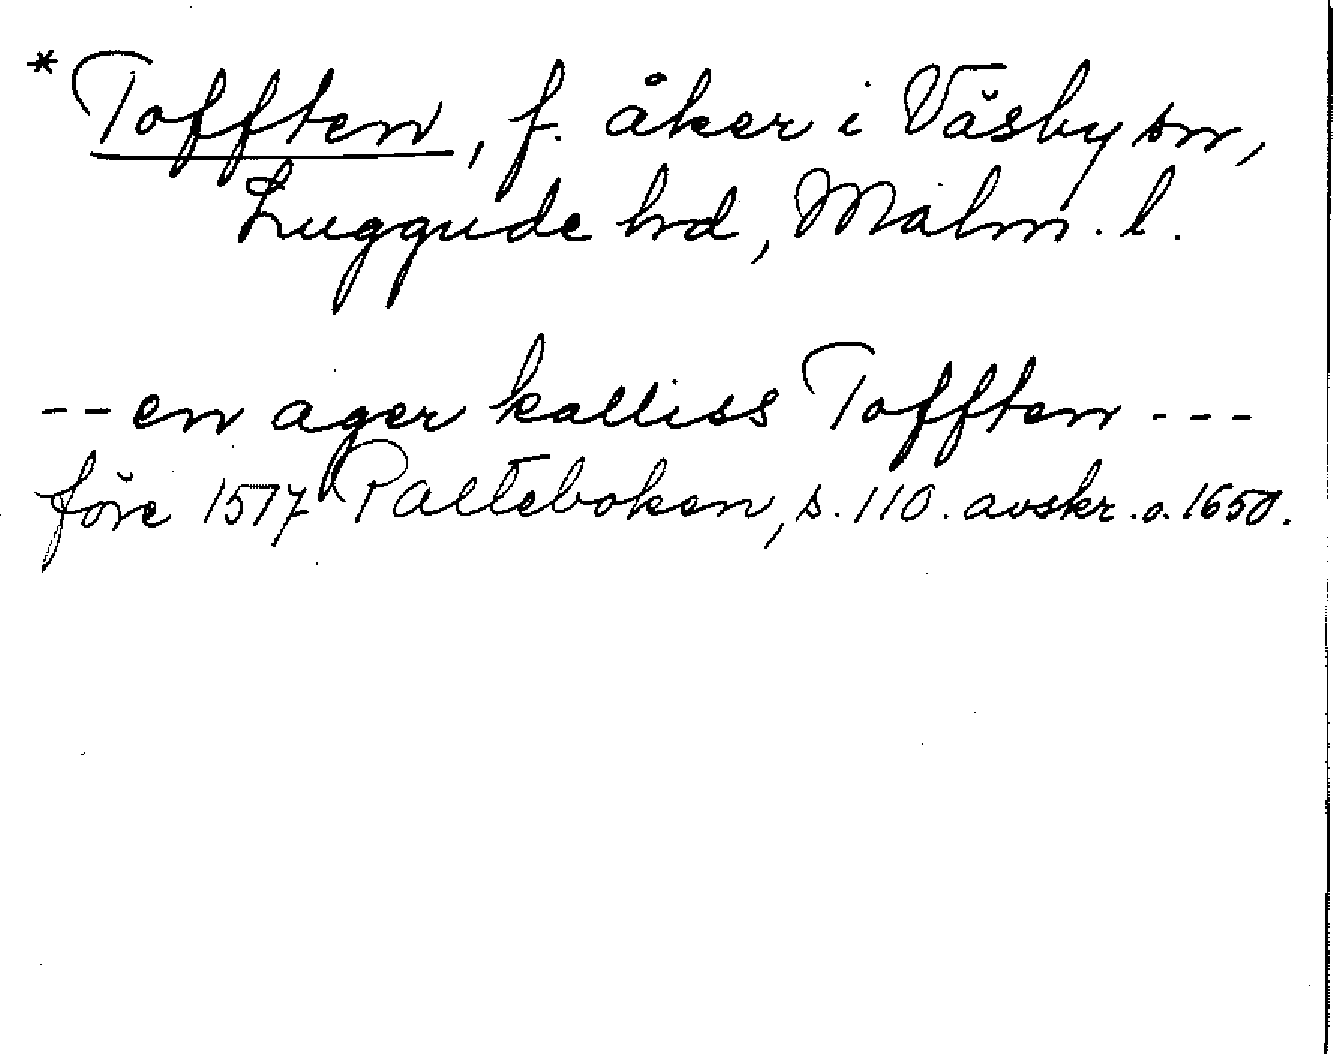 *Tofften, f. åker i Väsby sn,
Luggude hd, Malm. l.
-- en ager kalliss Tofften ---
före 1517 Palteboken, s. 110. avskr. o. 1650.